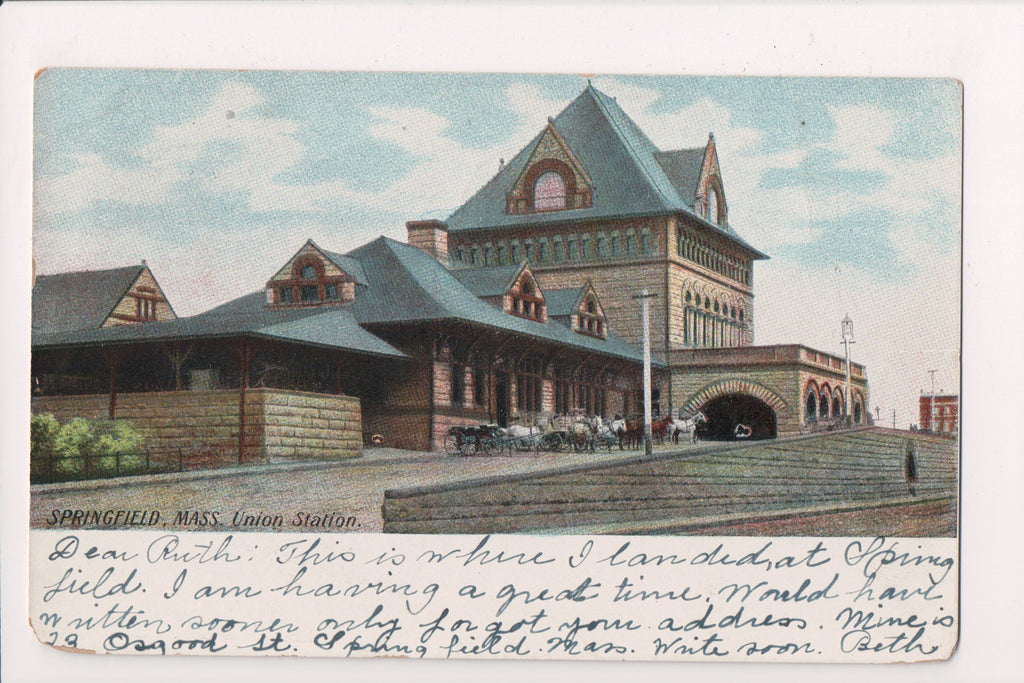 SPRINGFIELD, MASS. Union Station.
Dear Ruth: This is where I landed, at Spring
field. I am having a great time. Would have
written sooner only forgot your address. Mine is
23 Osgood St. Springfield. Mass. Write soon. Beth.